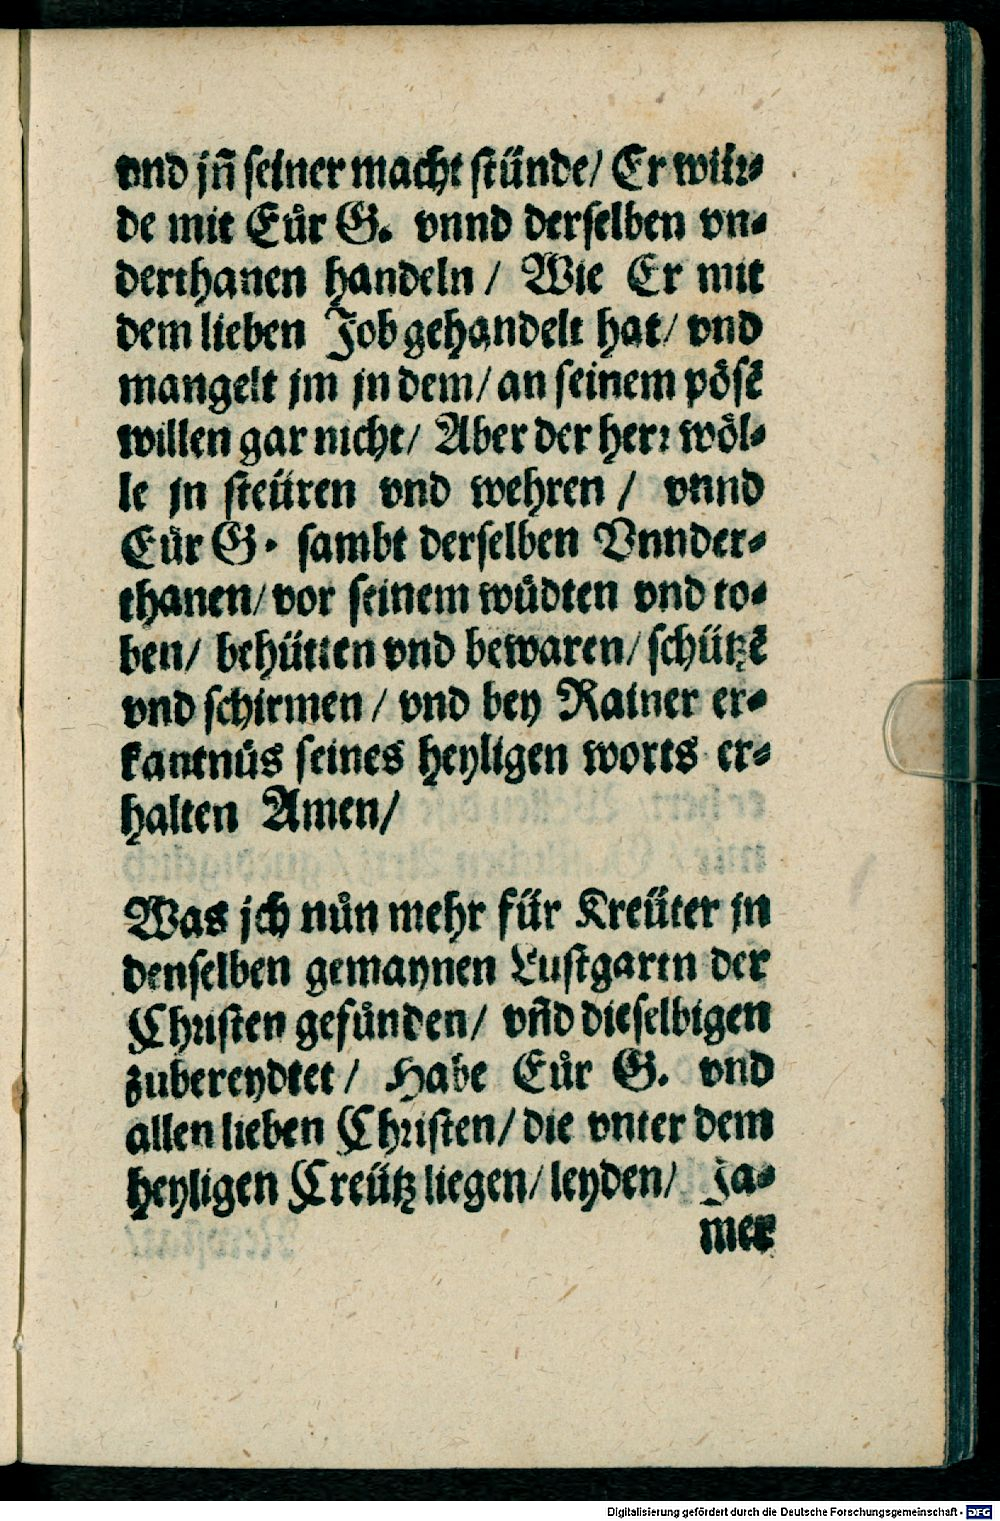 vnd jñ seiner macht stünde/ Er wür-
de mit Eůr G. vnnd derselben vn-
derthanen handeln / Wie Er mit
dem lieben Job gehandelt hat/ vnd
mangelt jm jn dem/ an seinem pösẽ
willen gar nicht/ Aber der herr wöl-
le jn steüren vnd wehren / vnnd
Eůr G. sambt derselben Vnnder-
thanen/ vor seinem wůdten vnd to-
ben/ behütten vnd bewaren/ schützẽ
vnd schirmen / vnd bey Rainer er-
kantnůs seines heyligen worts er-
halten Amen/
Was jch nůn mehr für Kreüter jn
denselben gemaynen Lustgartn der
Christen gefůnden/ vñd dieselbigen
zubereydtet / Habe Eůr G. vnd
allen lieben Christen/ die vnter dem
heyligen Creütz liegen/ leyden/ Ja-
mer
Digitalisierung gefördert durch die Deutsche Forschungsgemeinschaft - DFG